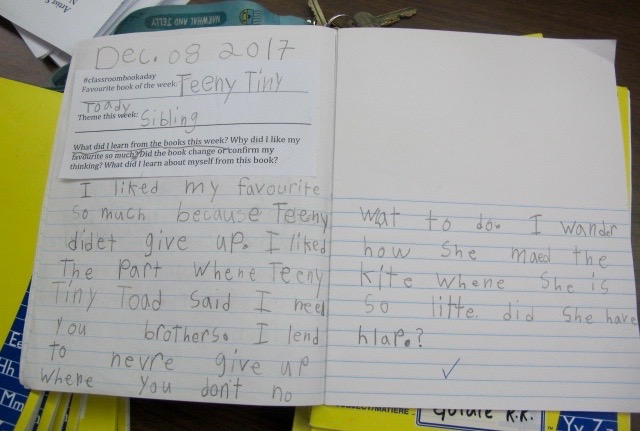 NARWHAL AND JELLY
Dec. 08 2017
#classroombookaday
Favourite book of the week: Teeny Tiny
Toady
Theme this week: Sibling
What did I learn from the books this week? Why did I like my
favourite so much? Did the book change or confirm my
thinking? What did I learn about myself from this book?
I liked my favourite
so much because Teeny
didet give up. I liked
The Part where Teeny
Tiny Toad said I need
you brothers. I lend
to nevre give up
where you don't no
wat to do. I wander
how she maed the
kite where she is
so litte. did she have
hlap.?
SUBJECT/MATIÈRE
Guide R.R.
Hh
Mm
Yy Zz